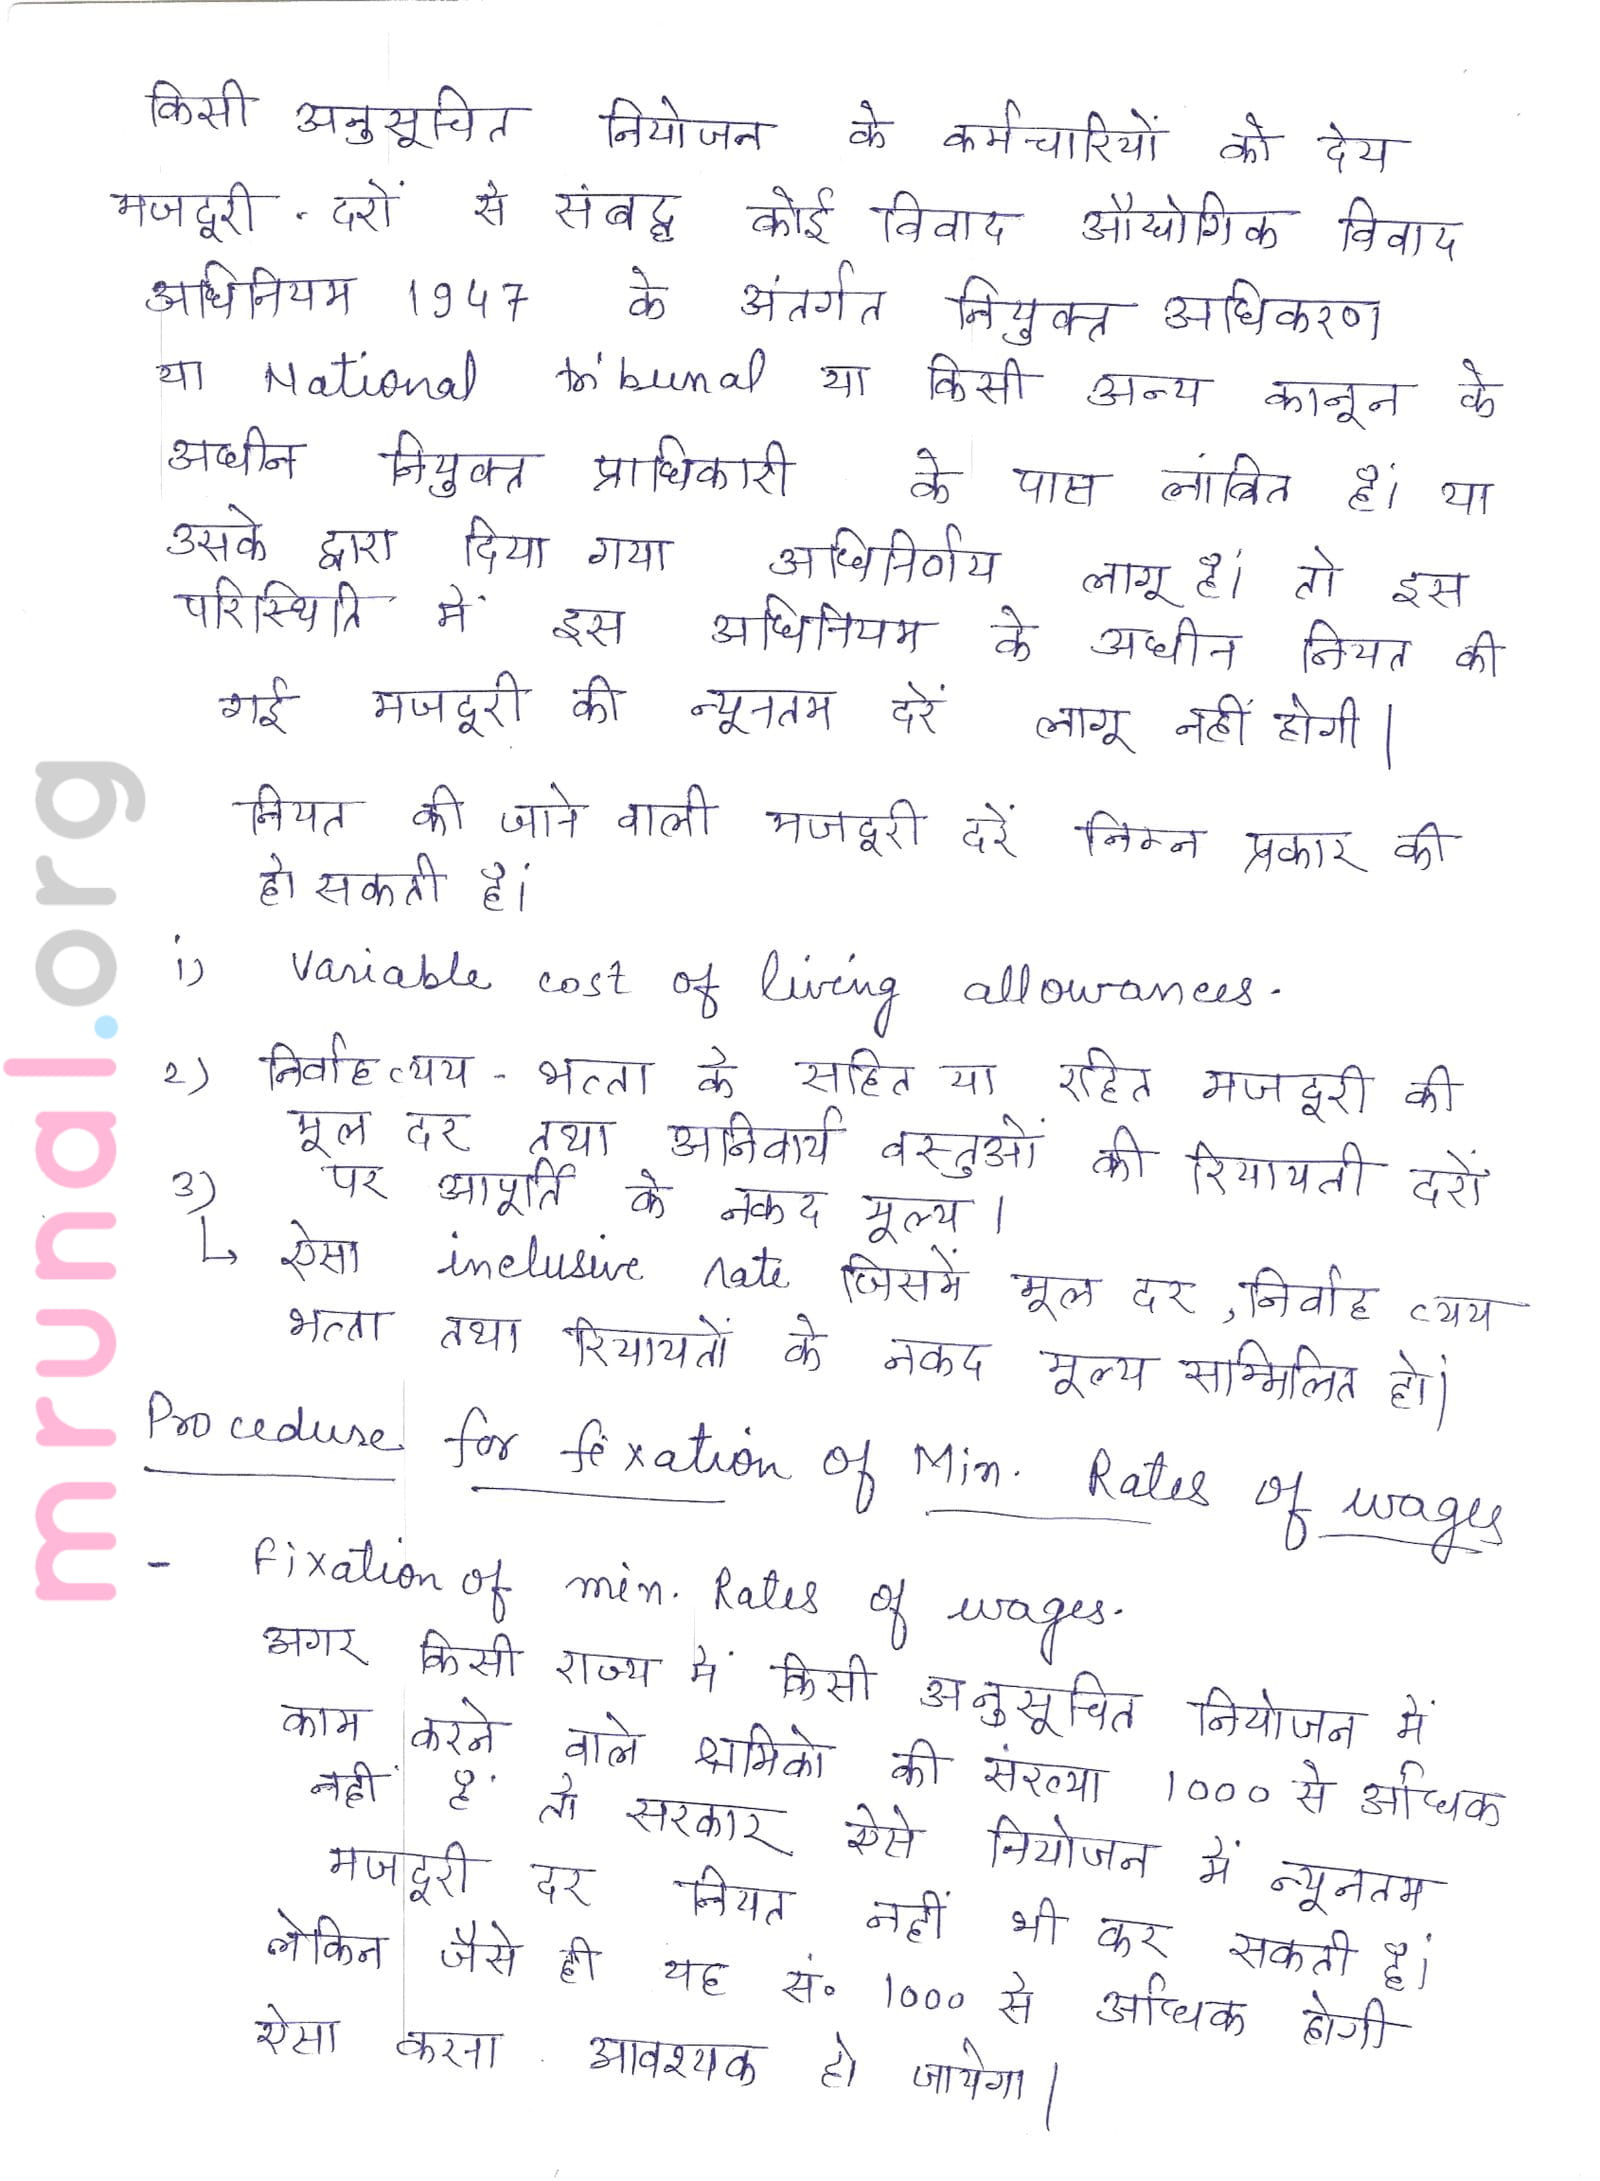 किसी अनुसूचित नियोजन के कर्मचारियों को देय
मजदूरी - दरों से संबद्ध कोई विवाद औद्योगिक विवाद
अधिनियम 1947 के अंतर्गत नियुक्त अधिकरण
या National tribunal या किसी अन्य कानून के
अधीन नियुक्त प्राधिकारी के पास लंबित है। या
उसके द्वारा दिया गया अधिनिर्णय लागू है। तो इस
परिस्थिति में इस अधिनियम के अधीन नियत की
गई मजदूरी की न्यूनतम दरें लागू नहीं होगी।
नियत की जाने वाली मजदूरी दरें निम्न प्रकार की
हो सकती है।
1) Variable cost of living allowances.
2) निर्वाह व्यय - भत्ता के सहित या रहित मजदूरी की
मूल दर तथा अनिवार्य वस्तुओं की रियायती दरों
पर आपूर्ति के नकद मूल्य।
3) ↳ ऐसा inclusive rate जिसमें मूल दर, निर्वाह व्यय
भत्ता तथा रियायतों के नकद मूल्य सम्मिलित हो।
Procedure for fixation of Min. Rates of wages
- Fixation of min. Rates of wages.
अगर किसी राज्य में किसी अनुसूचित नियोजन में
काम करने वाले श्रमिको की संख्या 1000 से अधिक
नहीं हैं तो सरकार ऐसे नियोजन में न्यूनतम
मजदूरी दर नियत नहीं भी कर सकती है।
लेकिन जैसे ही यह सं० 1000 से अधिक होगी
ऐसा करना आवश्यक हो जायेगा।
mrunal.org